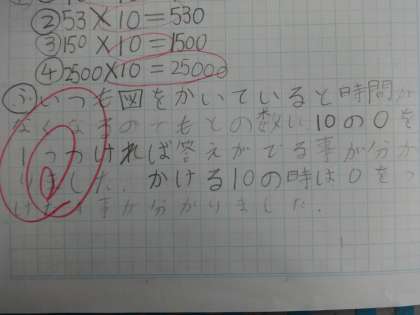 ②53×10=530
③150×10=1500
④2500×10=25000
㋫いつも図をかいていると時間が
なくなるのでもとの数に10の0を
1つつければ答えがでる事が分か
りました。かける10の時は0をつ
事が分かりました。